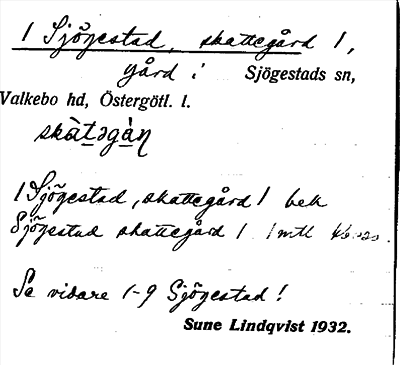 1 Sjögestad, skattegård 1,
gård i Sjögestads sn,
Valkebo hd, Östergötl. l.
skàtəgàn
1 Sjögestad, skattegård 1 bek
Sjögestad skattegård 1 1 mtl
Se vidare 1-9 Sjögestad!
Sune Lindqvist 1932.